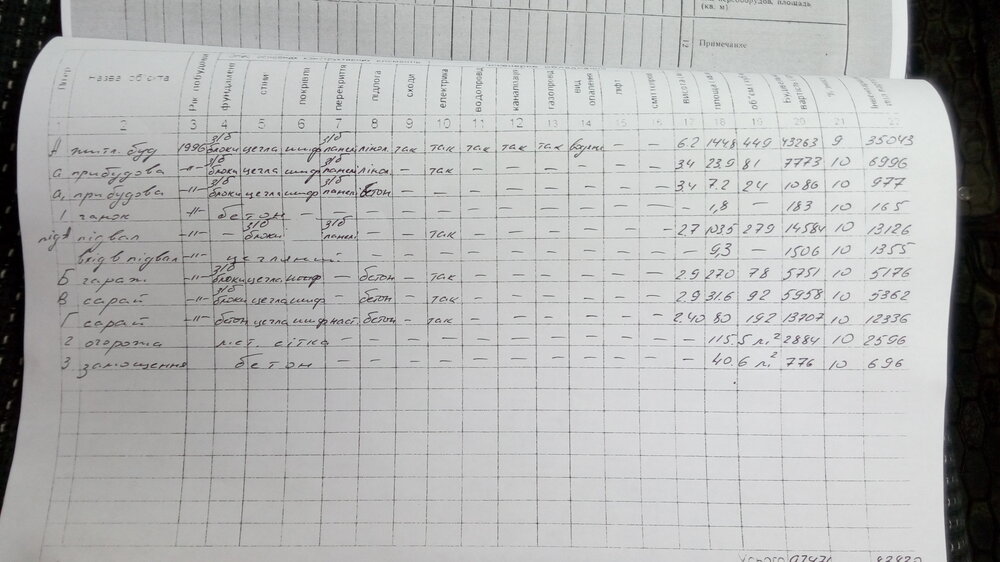 переоборудов. площадь
(кв. м)
12 Примечание
Назва об'єкта Рік побудови фундамент стіни покрівля перекриття підлога сходи електрика водопровід каналізація газопровід вид опалення ліфт
1 2 3 4 5 6 7 8 9 10 11 12 13 14 15 16 17 18 19 20 21 22
А житл. буд 1996 з/б блоки цегла шиф з/б панел лінол. так так так так так – – 6.2 144.8 449 43263 9 35043
а прибудова –"– з/б блоки цегла шиф з/б панел лінол – так – – – – – – 3.4 23.9 81 7773 10 6996
а₁ прибудова –"– з/б блоки цегла шиф з/б панел. бетон – – – – – – – – 3.4 7.2 24 1086 10 977
1. ганок –"– бетон – – – – – – – – – – – – – 1,8 – 183 10 165
підвал –"– – з/б блоки – з/б панелі – – так – – – – – – 2.7 103.5 279 14584 10 13126
вхід в підвал –"– цегляний – – – – – – – – – – – 9,3 – 1506 10 1355
Б гараж –"– з/б блоки цегла шиф – бетон – так – – – – – – 2.9 27.0 78 5751 10 5176
В сарай –"– з/б блоки цегла шиф – бетон – так – – – – – – 2.9 31.6 92 5958 10 5362
Г сарай –"– бетон цегла шиф наст. бетон – так – – – – – – 2.40 80 192 13707 10 12336
2 огорожа мет. сітка – – – – – – – – – – – 115.5 м² 2884 10 2596
3. замощення бетон – – – – – – – – – – – 40.6 м² 776 10 696